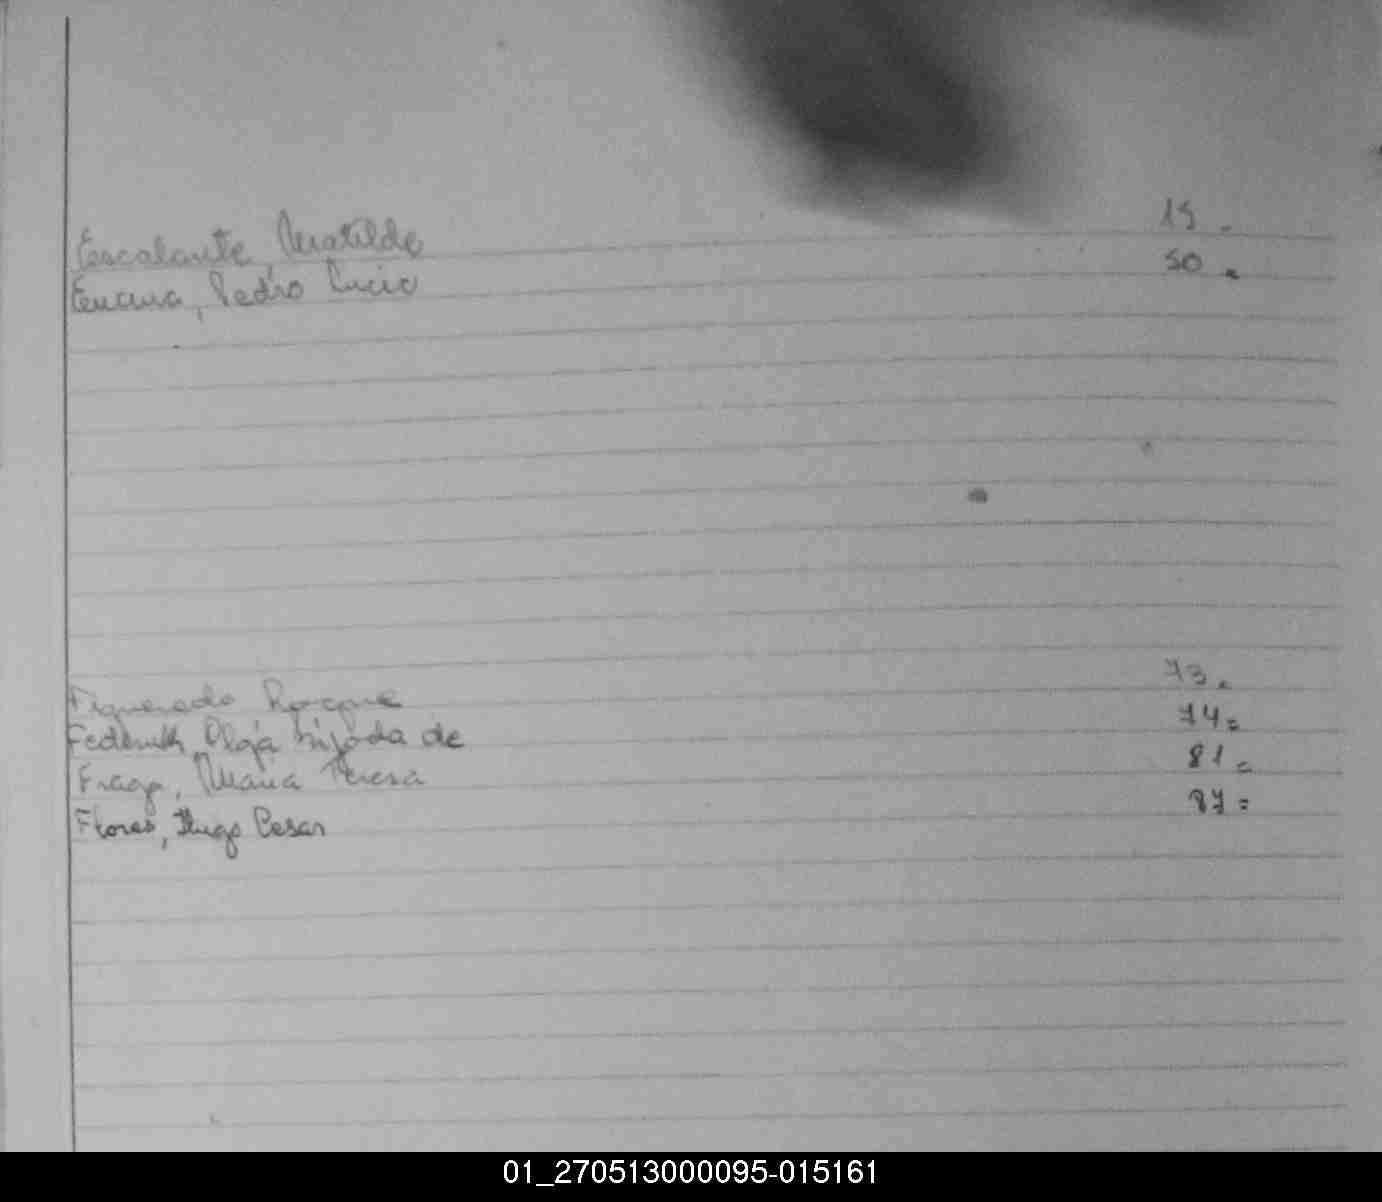 Escalante Matilde 15.
Encina, Pedro Lucio 50.
Figueredo Roque 73.
Olga Quijada de 74=
Maria Teresa 81=
Flores, Hugo Cesar 87=
01_270513000095-015161